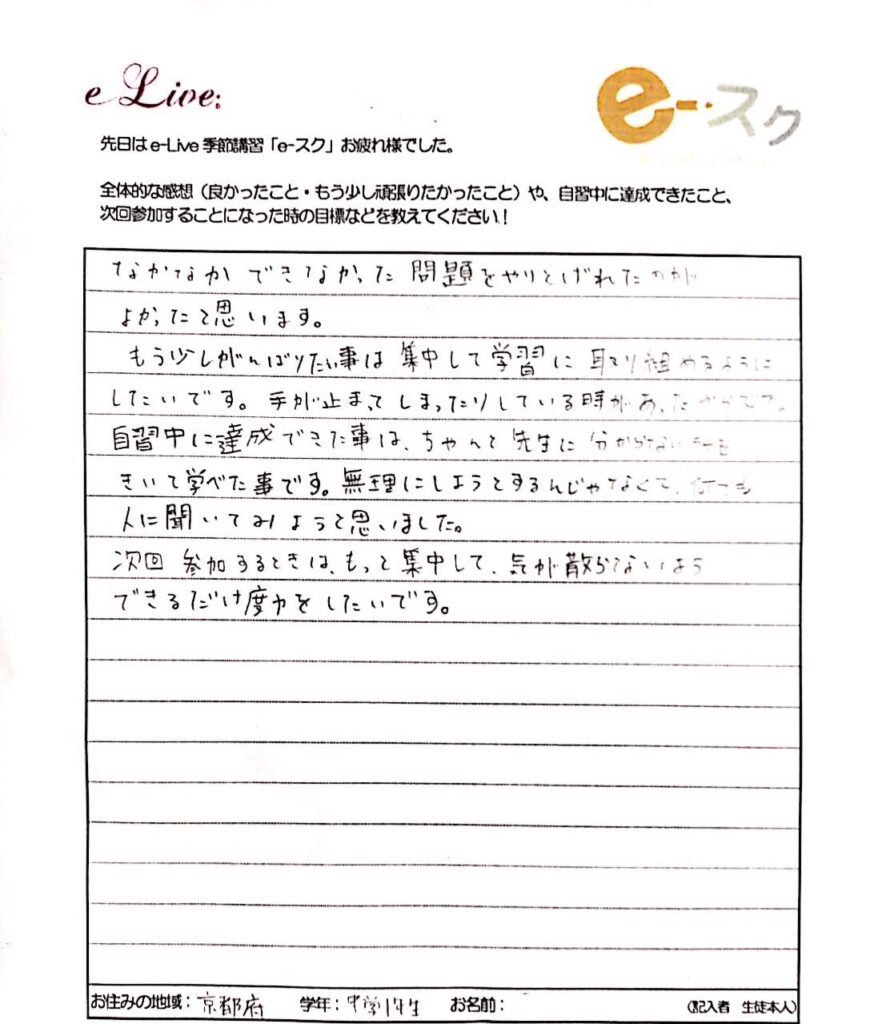 e Live:
e-スク
先日はe-Live季節講習「e-スク」お疲れ様でした。
全体的な感想（良かったこと・もう少し頑張りたかったこと）や、自習中に達成できたこと、
次回参加することになった時の目標などを教えてください！
なかなか できなかった 問題をやりとげれたのが
よかったと思います。
もう少しがんばりたい事は 集中して学習に 取り組めるように
したいです。手が止まってしまったりしている時があった
自習中に達成できた事は、ちゃんと先生に 分からない
きいて学べた事です。無理にしようとするんじゃなくて、
人に聞いてみようと思いました。
次回 参加するときは、もっと集中して、気が散らないよう
できるだけ度力をしたいです。
お住みの地域：京都府 学年：中学1年生 お名前： （記入者 生徒本人）